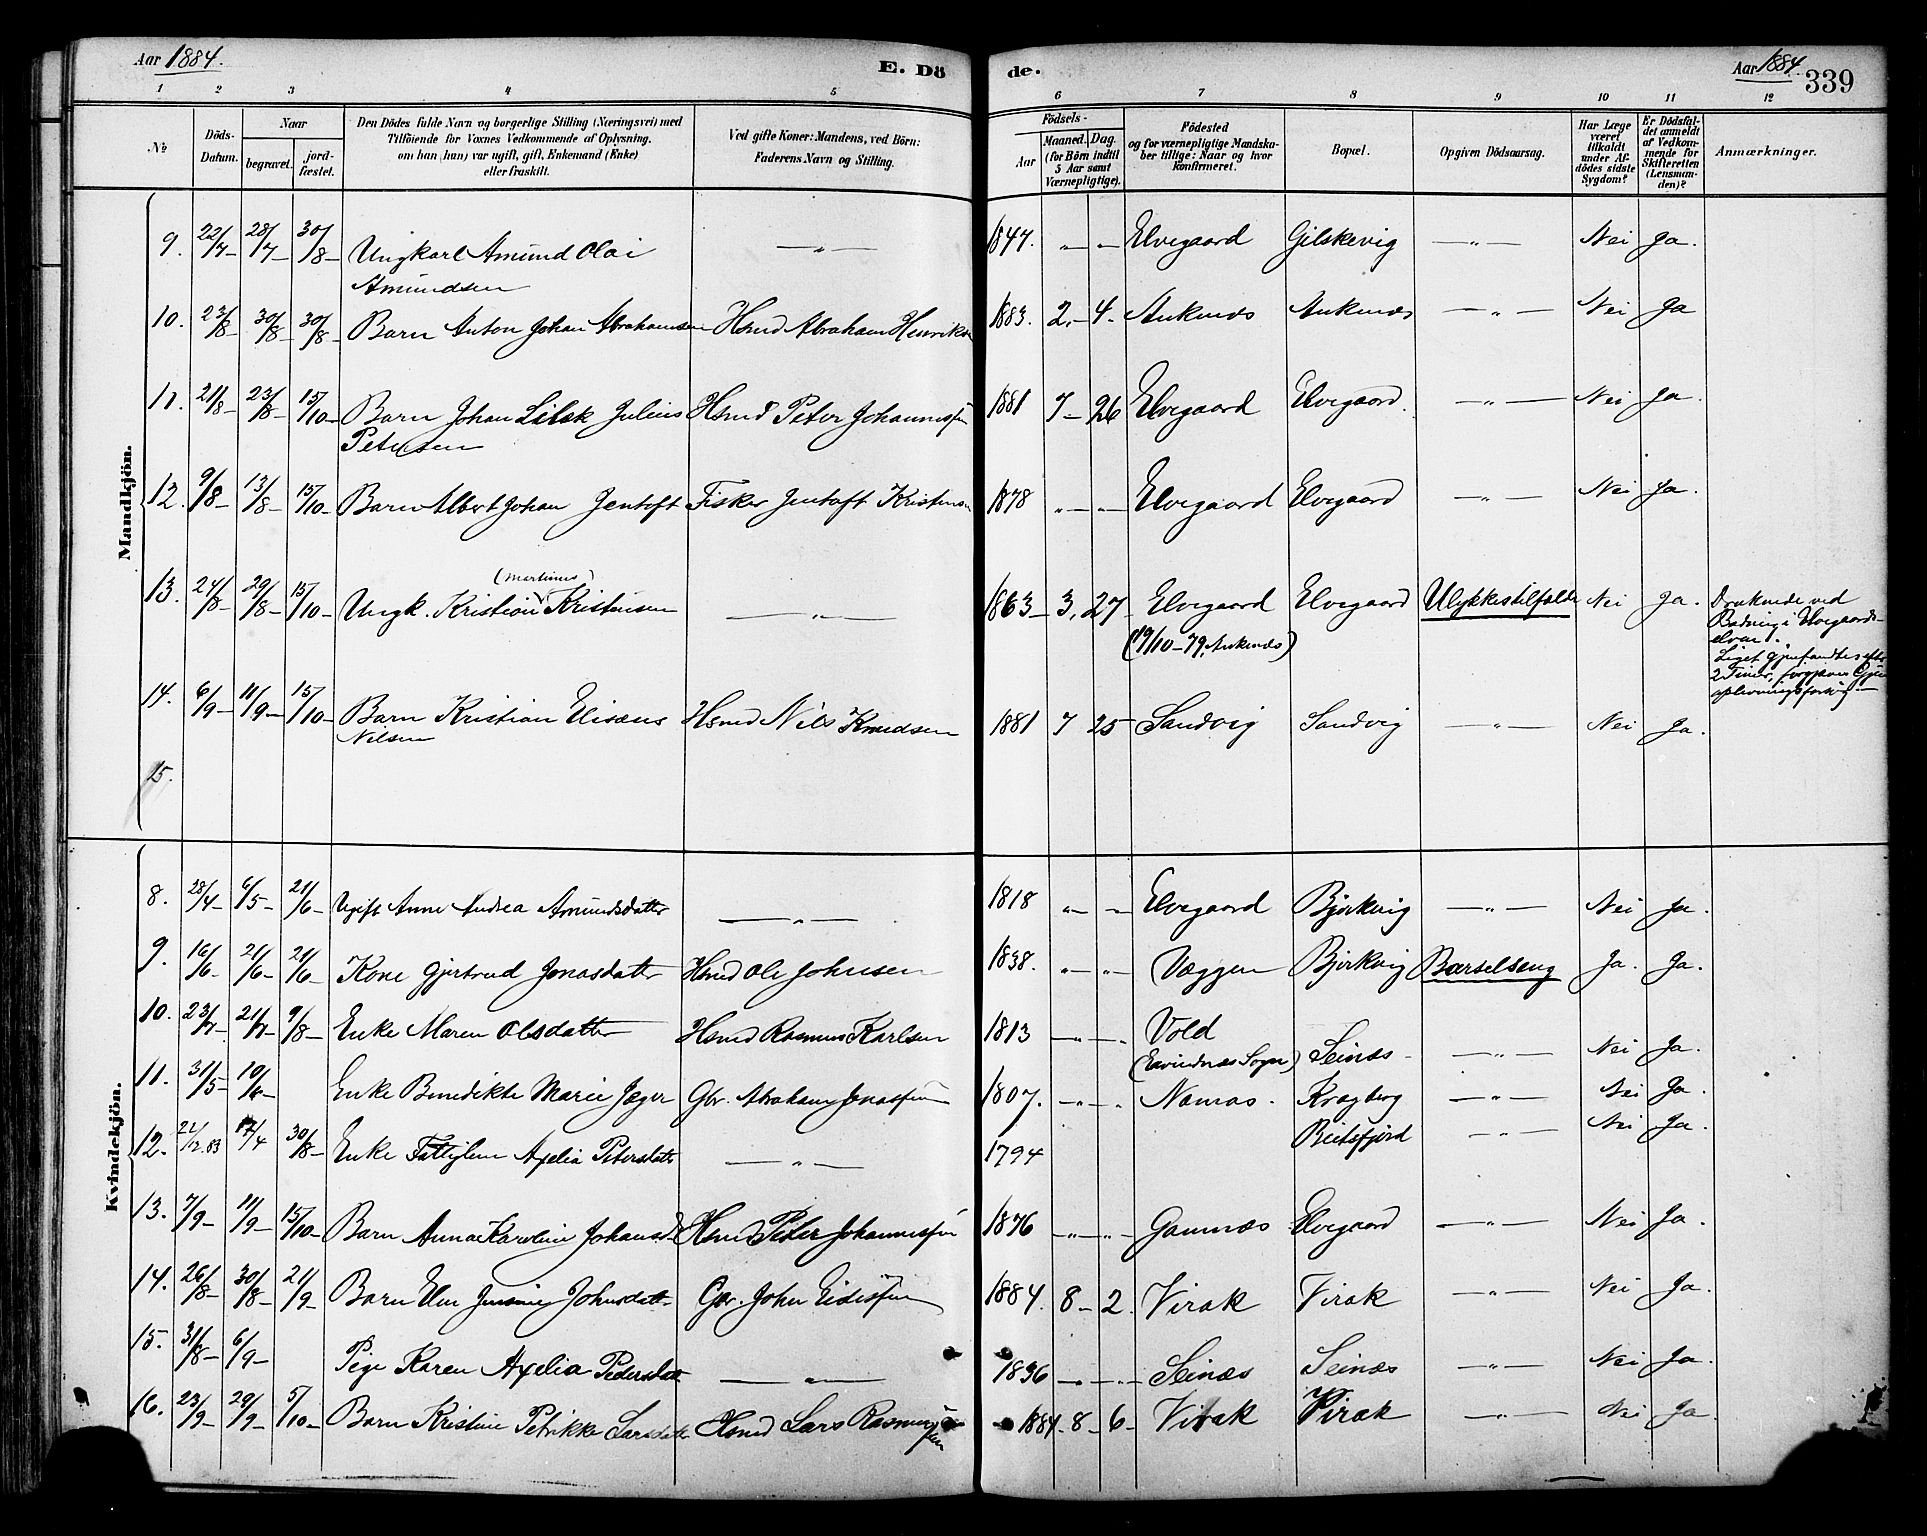 Aar 1884. E. Dö de. Aar 1884. 339
1 2 3 4 5 6 7 8 9 10 11 12
No
Döds-Datum.
Naar
begravet.
jord-fæstet.
Den Dödes fulde Navn og borgerlige Stilling (Næringsvei) med
Tilföiende for Voxnes Vedkommende af Oplysning.
om han (hun) var ugift, gift, Enkemand (Enke)
eller fraskilt.
Ved gifte Koner: Mandens, ved Börn:
Faderens Navn og Stilling.
Födsels-
Aar
Maaned. Dag.
(for Börn indtil
5 Aar samt
Værnepligtige).
Födested
og for værnepligtige Mandska-
ber tillige: Naar og hvor
konfirmeret.
Bopæl.
Opgiven Dödsaarsag.
Har Læge
været
tilkaldt
under Af-
dödes sidste
Sygdom?
Er Dödsfal-
det anmeldt
af Vedkom-
mende for
Skifteretten
(Lensman-
den)?
Anmærkninger.
Mandkjön.
9. 22/7 - 28/7 - 30/8 - Ungkarl Amund Olai —„— 1847. „ — „ — Elvegaard Gilskevig —„— Nei Ja.
Amundsen
10. 23/8 - 30/8 - 30/8 - Barn Anton Johan Abrahamsen Hsmd Abraham Henriksen 1883. 2. - 4. Ankenæs Ankenæs —„— Nei Ja
11. 21/8 - 23/8 - 15/10 - Barn Johan Julius Hsmd Peter Johannessen 1881 7 - 26 Elvegaard Elvegaard. —„— Nei Ja.
Petersen
12. 9/8 - 13/8 - 15/10 - Barn Albert Johan Jentoft Fisker Jentoft Kristensen 1878 „ — „ — Elvegaard Elvegaard —„— Nei Ja.
(Martinus)
13. 24/8 - 29/8 - 15/10 - Ungk. Kristian Kristensen —„— 1863 - 3. 27 - Elvegaard Elvegaard Ulykkestilfælde Nei Ja. Druknede ved
(19/10 - 79. Ankenæs)
Badning i Elvegaards-
elven.
Liget gjenfandtes eft.
2 Timer, forgjæves Gjen-
oplivningsforsøg —
14. 6/9 - 11/9 - 15/10 - Barn Kristian Elisæus Hsmd Nils Knudsen 1881 7 25 - Sandvig Sandvig —„— Nei Ja.
Nilsen
15.
Kvindekjön.
8. 28/4 - 6/5 - 21/6 - Ugift Anne Andrea Amundsdatter —„— 1818 „ — „ — Elvegaard Bjerkvig —„— Nei Ja.
9. 16/6 - 21/6 - 21/6 - Kone Gjertrud Jonasdatter Hsmd Ole Johnsen 1838. „ — „ — Væggen Bjerkvig Barselseng Ja. Ja.
10. 23/7 - 21/7 - 9/8 - Enke Maren Olsdatter Hsmd Rasmus Karlsen 1813 — „ — „ Vold
(Sogn) Seinæs - —„— Nei Ja.
11. 31/5 - 10/6 - Enke Benedikte Marie Jæger Gbr. Abraham Jonassen 1807. — „ — „ Kragberg —„— Nei Ja.
12. 21/12.83 17/4 30/8 - Enke Fattiglem Axelia Petersdatter —„— 1794 Beitsfjord —„— Nei Ja.
13. 7/9 - 11/9 - 15/10 - Barn Anna Karoline Johansd. Hsmd Peter Johannessen 1876 — „ — „ — Gamnæs Elvegaard —„— Nei Ja.
14. 26/8 - 30/8 - 21/9 - Barn Johnsdatter Gbr. John Eidissen 1884. 8 - 2. Virak Virak —„— Nei Ja.
15. 31/8 - 6/9 - Pige Karen Axelia Pedersdatter —„— 1836 — „ — „ — Seinæs Seinæs —„— Nei Ja.
16. 23/9 - 29/9 - 5/10 - Barn Kristine Petrikke Larsdatter Hsmd Lars Rasmussen - 1884 - 8 - 6 - Virak Virak —„— Nei Ja.